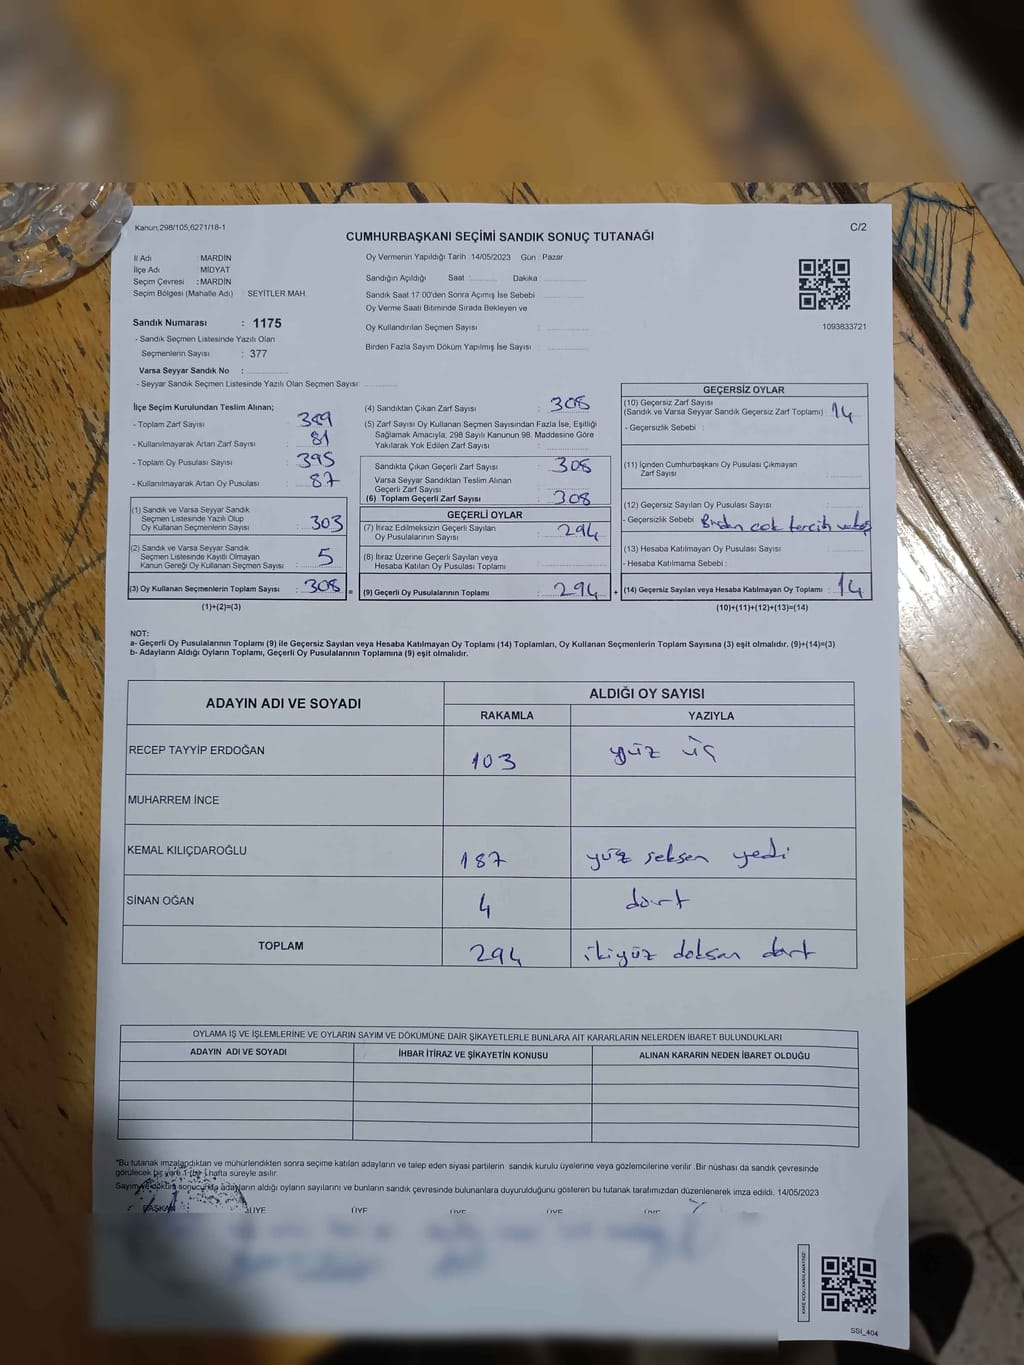 Kanun:298/105,6271/18-1
C/2
CUMHURBAŞKANI SEÇİMİ SANDIK SONUÇ TUTANAĞI
İl Adı : MARDİN
İlçe Adı : MİDYAT
Seçim Çevresi : MARDİN
Seçim Bölgesi (Mahalle Adı) : SEYİTLER MAH.
Sandık Numarası : 1175
- Sandık Seçmen Listesinde Yazılı Olan
Seçmenlerin Sayısı : 377
Varsa Seyyar Sandık No :
- Seyyar Sandık Seçmen Listesinde Yazılı Olan Seçmen Sayısı:
Oy Vermenin Yapıldığı Tarih :14/05/2023 Gün : Pazar
Sandığın Açıldığı Saat : Dakika :
Sandık Saat 17.00'den Sonra Açımış İse Sebebi
Oy Verme Saati Bitiminde Sırada Bekleyen ve
Oy Kullandırılan Seçmen Sayısı :
Birden Fazla Sayım Döküm Yapılmış İse Sayısı :
1093833721
İlçe Seçim Kurulundan Teslim Alınan;
- Toplam Zarf Sayısı : 389
- Kullanılmayarak Artan Zarf Sayısı : 81
- Toplam Oy Pusulası Sayısı : 395
- Kullanılmayarak Artan Oy Pusulası : 87
(1) Sandık ve Varsa Seyyar Sandık
Seçmen Listesinde Yazılı Olup
Oy Kullanan Seçmenlerin Sayısı : 303
(2) Sandık ve Varsa Seyyar Sandık
Seçmen Listesinde Kayıtlı Olmayan
Kanun Gereği Oy Kullanan Seçmen Sayısı : 5
(3) Oy Kullanan Seçmenlerin Toplam Sayısı : 308 =
(1)+(2)=(3)
(4) Sandıktan Çıkan Zarf Sayısı : 308
(5) Zarf Sayısı Oy Kullanan Seçmen Sayısından Fazla İse, Eşitliği
Sağlamak Amacıyla; 298 Sayılı Kanunun 98. Maddesine Göre
Yakılarak Yok Edilen Zarf Sayısı :
Sandıkta Çıkan Geçerli Zarf Sayısı : 308
Varsa Seyyar Sandıktan Teslim Alınan
Geçerli Zarf Sayısı :
(6) Toplam Geçerli Zarf Sayısı : 308
GEÇERLİ OYLAR
(7) İtiraz Edilmeksizin Geçerli Sayılan
Oy Pusulalarının Sayısı : 294
(8) İtiraz Üzerine Geçerli Sayılan veya
Hesaba Katılan Oy Pusulası Toplamı :
(9) Geçerli Oy Pusulalarının Toplamı : 294 +
GEÇERSİZ OYLAR
(10) Geçersiz Zarf Sayısı
(Sandık ve Varsa Seyyar Sandık Geçersiz Zarf Toplamı) : 14
- Geçersizlik Sebebi :
(11) İçinden Cumhurbaşkanı Oy Pusulası Çıkmayan
Zarf Sayısı :
(12) Geçersiz Sayılan Oy Pusulası Sayısı :
- Geçersizlik Sebebi : Birden çok tercih
(13) Hesaba Katılmayan Oy Pusulası Sayısı :
- Hesaba Katılmama Sebebi :
(14) Geçersiz Sayılan veya Hesaba Katılmayan Oy Toplamı : 14
(10)+(11)+(12)+(13)=(14)
NOT:
a- Geçerli Oy Pusulalarının Toplamı (9) ile Geçersiz Sayılan veya Hesaba Katılmayan Oy Toplamı (14) Toplamları, Oy Kullanan Seçmenlerin Toplam Sayısına (3) eşit olmalıdır. (9)+(14)=(3)
b- Adayların Aldığı Oyların Toplamı, Geçerli Oy Pusulalarının Toplamına (9) eşit olmalıdır.
ADAYIN ADI VE SOYADI
ALDIĞI OY SAYISI
RAKAMLA YAZIYLA
RECEP TAYYİP ERDOĞAN 103 yüz üç
MUHARREM İNCE
KEMAL KILIÇDAROĞLU 187 yüz seksen yedi
SİNAN OĞAN 4 dört
TOPLAM 294 ikiyüz doksan dört
OYLAMA İŞ VE İŞLEMLERİNE VE OYLARIN SAYIM VE DÖKÜMÜNE DAİR ŞİKAYETLERLE BUNLARA AİT KARARLARIN NELERDEN İBARET BULUNDUKLARI
ADAYIN ADI VE SOYADI İHBAR İTİRAZ VE ŞİKAYETİN KONUSU ALINAN KARARIN NEDEN İBARET OLDUĞU
*Bu tutanak imzalandıktan ve mühürlendikten sonra seçime katılan adayların ve talep eden siyasi partilerin sandık kurulu üyelerine veya gözlemcilerine verilir. Bir nüshası da sandık çevresinde
görülecek bir yere 1 (bir) hafta süreyle asılır.
Sayım ve döküm sonucunda adayların aldığı oyların sayılarını ve bunların sandık çevresinde bulunanlara duyurulduğunu gösteren bu tutanak tarafımızdan düzenlenerek imza edildi. 14/05/2023
BAŞKAN ÜYE ÜYE ÜYE ÜYE ÜYE
SSI_404